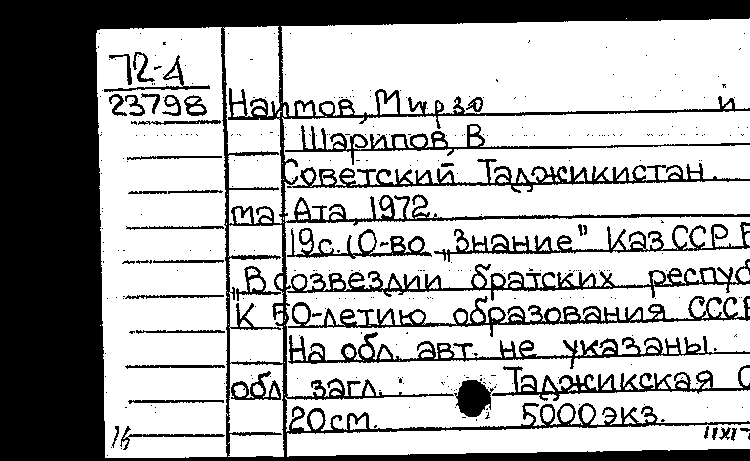 72-4
23798 Наимов, Мирзо и
Шарипов, В
Советский Таджикистан.
та-Ата, 1972.
19с. (О-во „Знание" Каз ССР.
„В созвездии братских респуб
К 50-летию образования СССР
На обл. авт. не указаны.
обл загл. : Таджикская С
20см. 5000 экз.
16